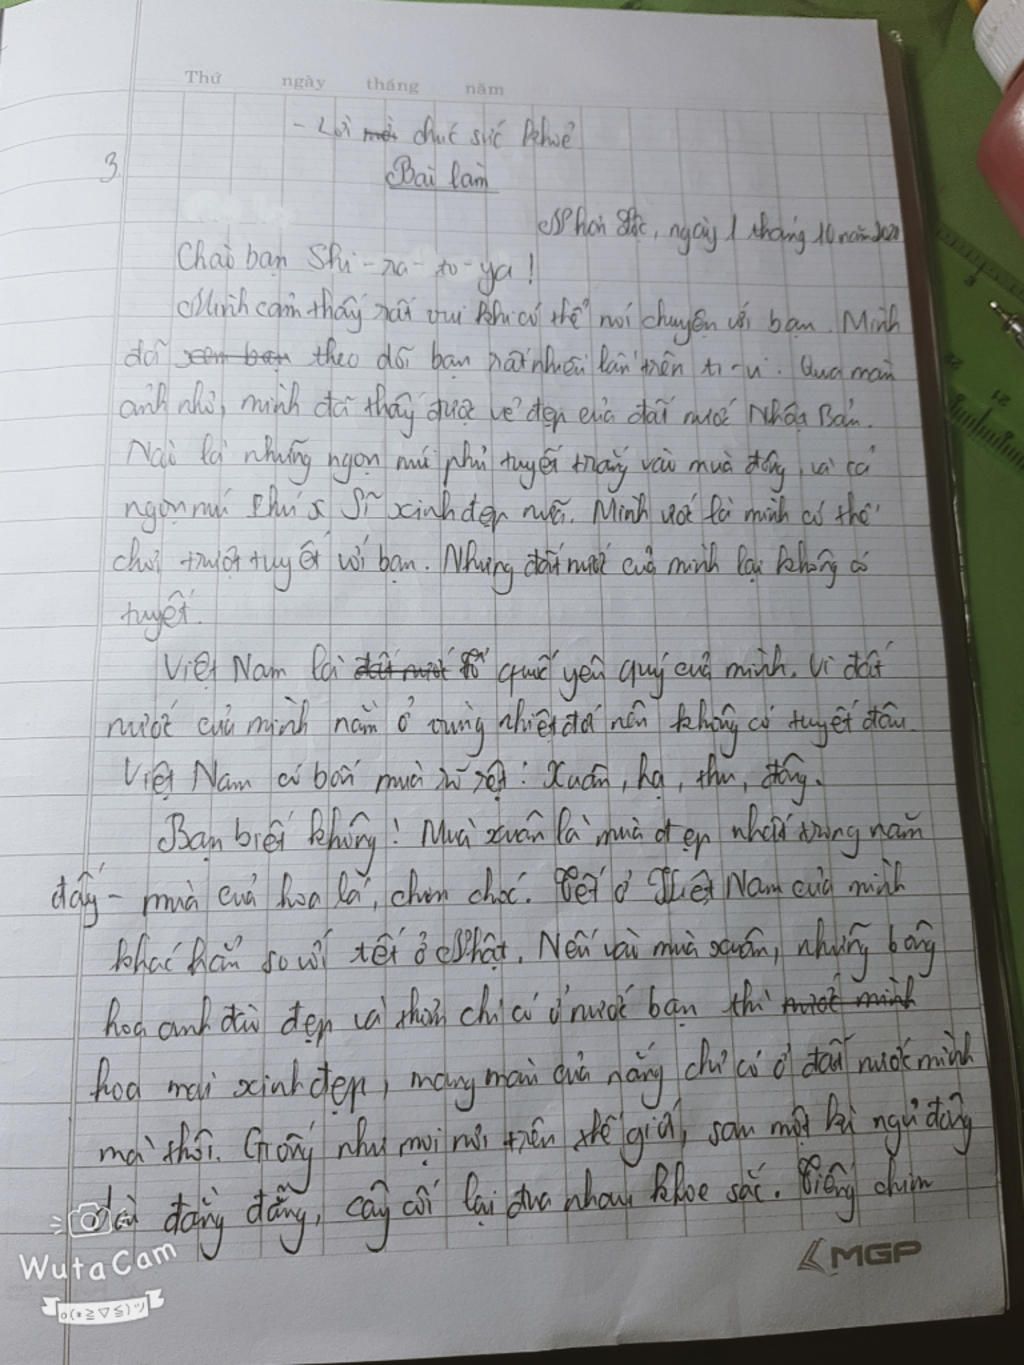 Thứ ngày tháng năm
- Lời mời chúc sức khoẻ
3.
Bài làm
Nhơn Lộc, ngày 1 tháng 10 năm
Chào bạn Shi-za-to-ya!
Mình cảm thấy rất vui khi có thể nói chuyện với bạn. Mình
đã xem bạn theo dõi bạn rất nhiều lần trên ti-vi. Qua màn
ảnh nhỏ, mình đã thấy được vẻ đẹp của đất nước Nhật Bản.
Nào là những ngọn núi phủ tuyết trắng vào mùa đông, và cả
ngọn núi Phú Sĩ xinh đẹp nữa. Mình ước là mình có thể
chơi trượt tuyết với bạn. Nhưng đất nước của mình lại không có
tuyết.
Việt Nam là đất nước tổ quốc yêu quý của mình. Vì đất
nước của mình nằm ở vùng nhiệt đới nên không có tuyết đâu.
Việt Nam có bốn mùa rõ rệt: Xuân, hạ, thu, đông.
Bạn biết không! Mùa xuân là mùa đẹp nhất trong năm
đấy - mùa của hoa lá, chim chóc. Tết ở Việt Nam của mình
khác hẳn so với tết ở Nhật. Nếu vào mùa xuân, những bông
hoa anh đào đẹp và thơm chỉ có ở nước bạn thì nước mình
hoa mai xinh đẹp, mang màu của nắng chỉ có ở đất nước mình
mà thôi. Giống như mọi nơi trên thế giới, sau một kì ngủ đông
dài đằng đẵng, cây cối lại đua nhau khoe sắc. Tiếng chim
MGP
WutaCam
o(*≧▽≦)ツ